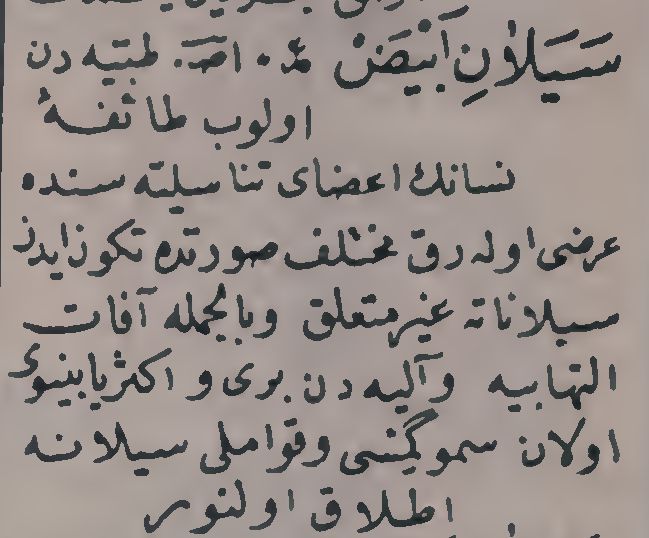 سَيَلَانِ اَبْيَضْ ع. اصـ. طبیه دن
اولوب طائفهٔ
نسانك اعضای تناسلیه سنده
عرضی اوله رق مختلف صورتده تكون ایدن
سیلاناته غیرمتعلق وبالجمله آفات
التهابیه وآلیه دن بری و اكثریا بینیوی
اولان سموگمنسی وقواملی سیلانه
اطلاق اولنور